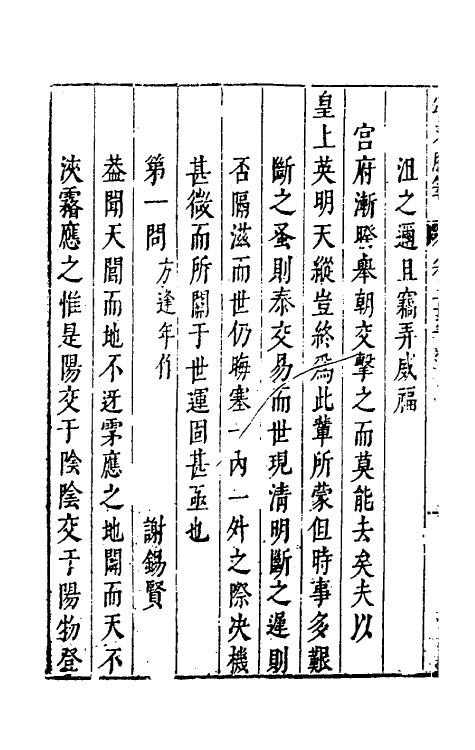 沮之邇且竊弄威福
宫府漸睽舉朝交擊之而莫能去矣夫以
皇上英明天縱豈終爲此輩所蒙但時事多艱
斷之蚤則泰交易而世現清明斷之遲則
否隔滋而世仍晦塞一內一外之際决機
甚微而所關于世運固甚亟也
第一問 方逢年作 謝錫賢
葢聞天闓而地不迓霖應之地闢而天不
浹霧應之惟是陽交于陰陰交于陽物登